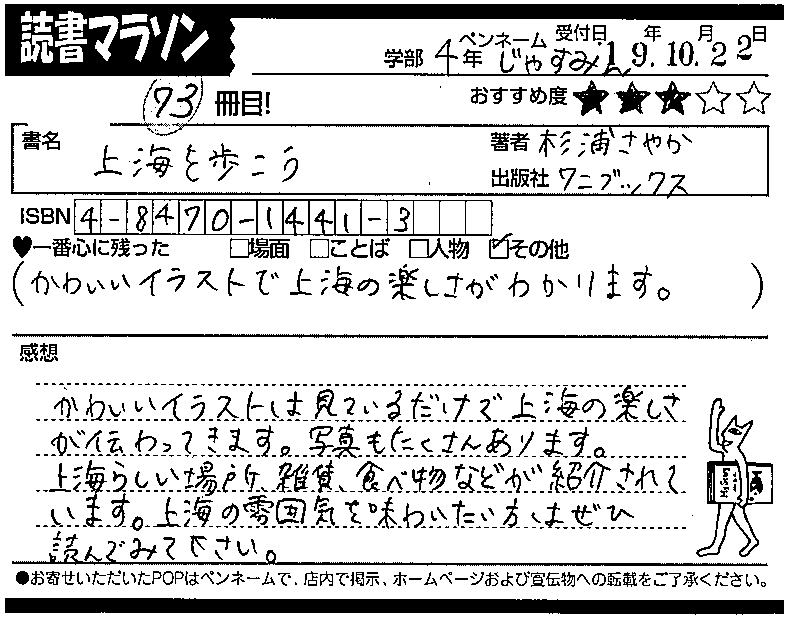 読書マラソン
学部 4年 ペンネーム じゃすみん 受付日 19年.10月.22日
73 冊目! おすすめ度 ★★★☆☆
書名 上海を歩こう 著者 杉浦さやか
出版社 ワニブックス
ISBN 4-8470-1441-3
♥一番心に残った □場面 □ことば □人物 ☑その他
(かわいいイラストで上海の楽しさがわかります。)
感想
かわいいイラストは見ているだけで上海の楽しさ
が伝わってきます。写真もたくさんあります。
上海らしい場所、雑貨、食べ物などが紹介されて
います。上海の雰囲気を味わいたい方はぜひ
読んでみて下さい。
●お寄せいただいたPOPはペンネームで、店内で掲示、ホームページおよび宣伝物への転載をご了承ください。